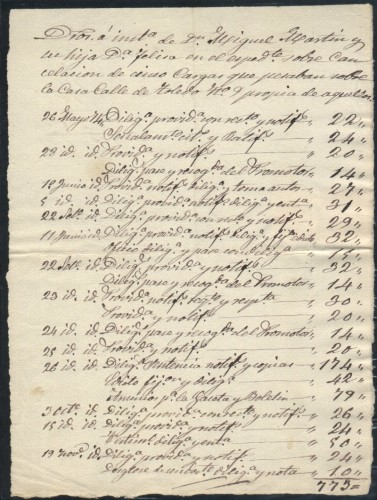 Dros. á insta. de Dn. Miguel Martin y
su hija Da. Felisa en el expedte. sobre Can-
celacion de cinco Cargas que pesaban sobre
la Casa Calle de Toledo No. 9 propia de aquellos
26 Mayo 74 Diliga. provida. con recto. y notifn. " 22 "
Señalamto. cit. y Ratif. " 24 "
28 id. id. Provida. y notifn. " 20 "
Diliga. pase y recoga. del Promotor " 14 "
Junio id. Provida. notifn. diliga. y toma autos " 27 "
5 id. id. Diliga. provida. notifn. diliga. y enta. " 31 "
22 id. Diliga. provida. con y notifn. " 29 "
11 Junio id. Diliga. provida. notifn. diliga. y fija. edicto " 32 "
Oficio diliga. y " 15 "
22 Sete. id. Diliga. provida. y notifn. " 32 "
Diliga. pase y recoga. del Promotor " 14 "
23 id. id. Provida. notifn. y " 30 "
Provida. y notifn. " 20 "
24 id. id. Diliga. pase y recoga. del Promotor " 14 "
25 id. id. Provida. y notifn. " 20 "
26 id. id. Diliga. Sentencia notifn. y copias " 174 "
Edicto fija. y diliga. " 42 "
Anuncios pa. la Gaceta y Boletin " 79 "
3 Octe. id. Diliga. provida. con recto. y notifn. " 26 "
15 id. id. Diliga. provida. y notifn. " 24 "
diliga. y enta. " 50 "
19 Nove. id. Diliga. provida. y notifn. " 24 "
Desglose de diliga. y nota " 10 "
775 =